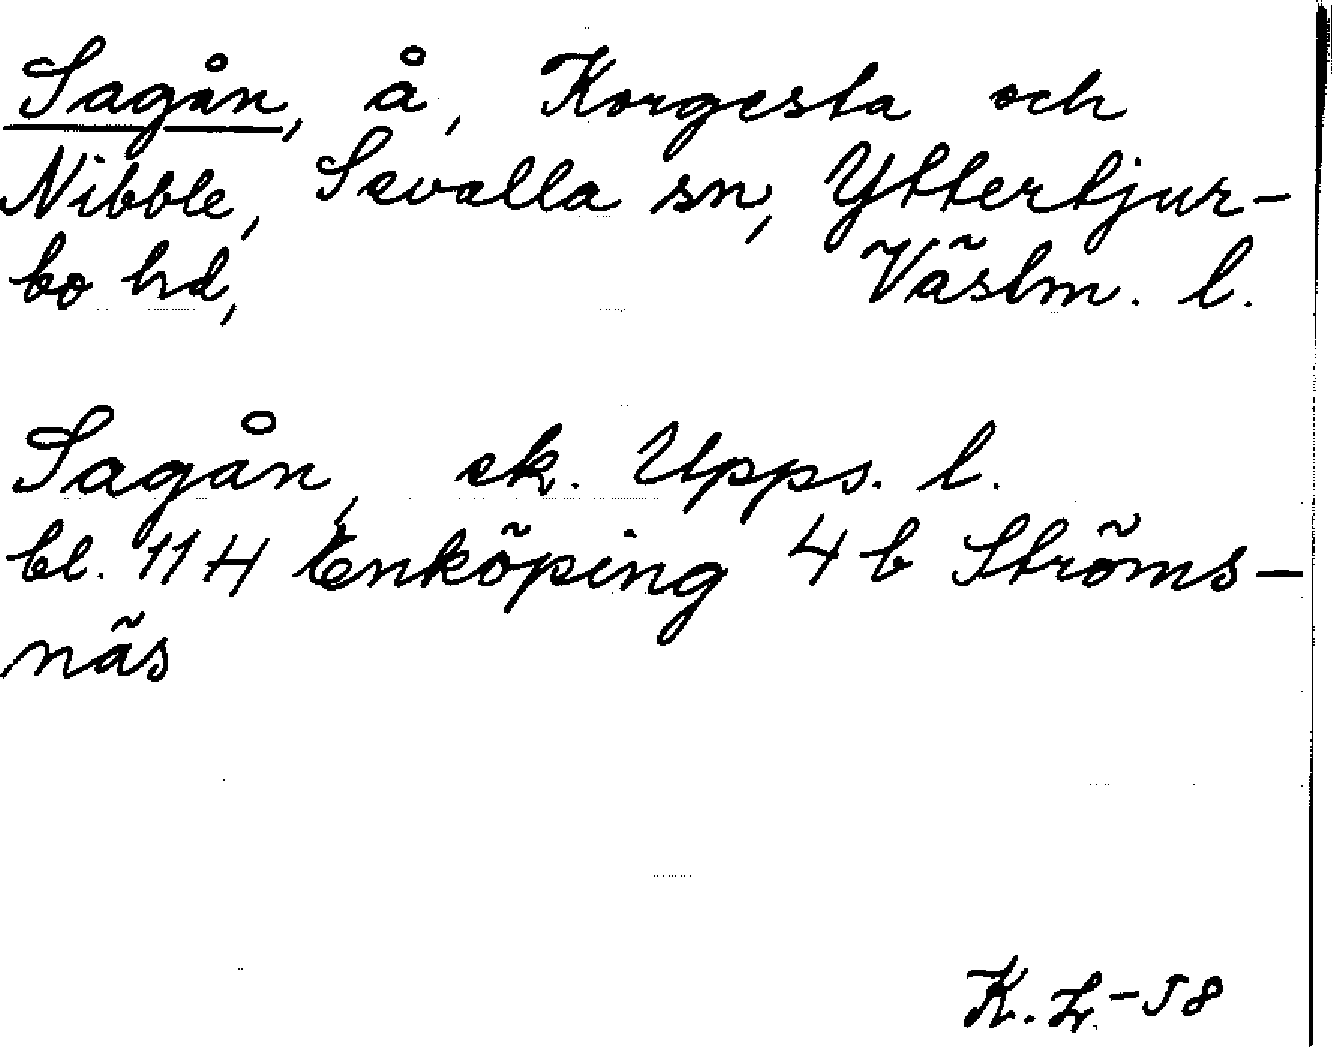 Sagån, å, Korgesta och
Nibble, Sevalla sn, Yttertjur-
bo hd, Västm. l.
Sagån, ek. Upps. l.
bl. 11 H Enköping 4 b Ströms-
näs
K. Lr. -58